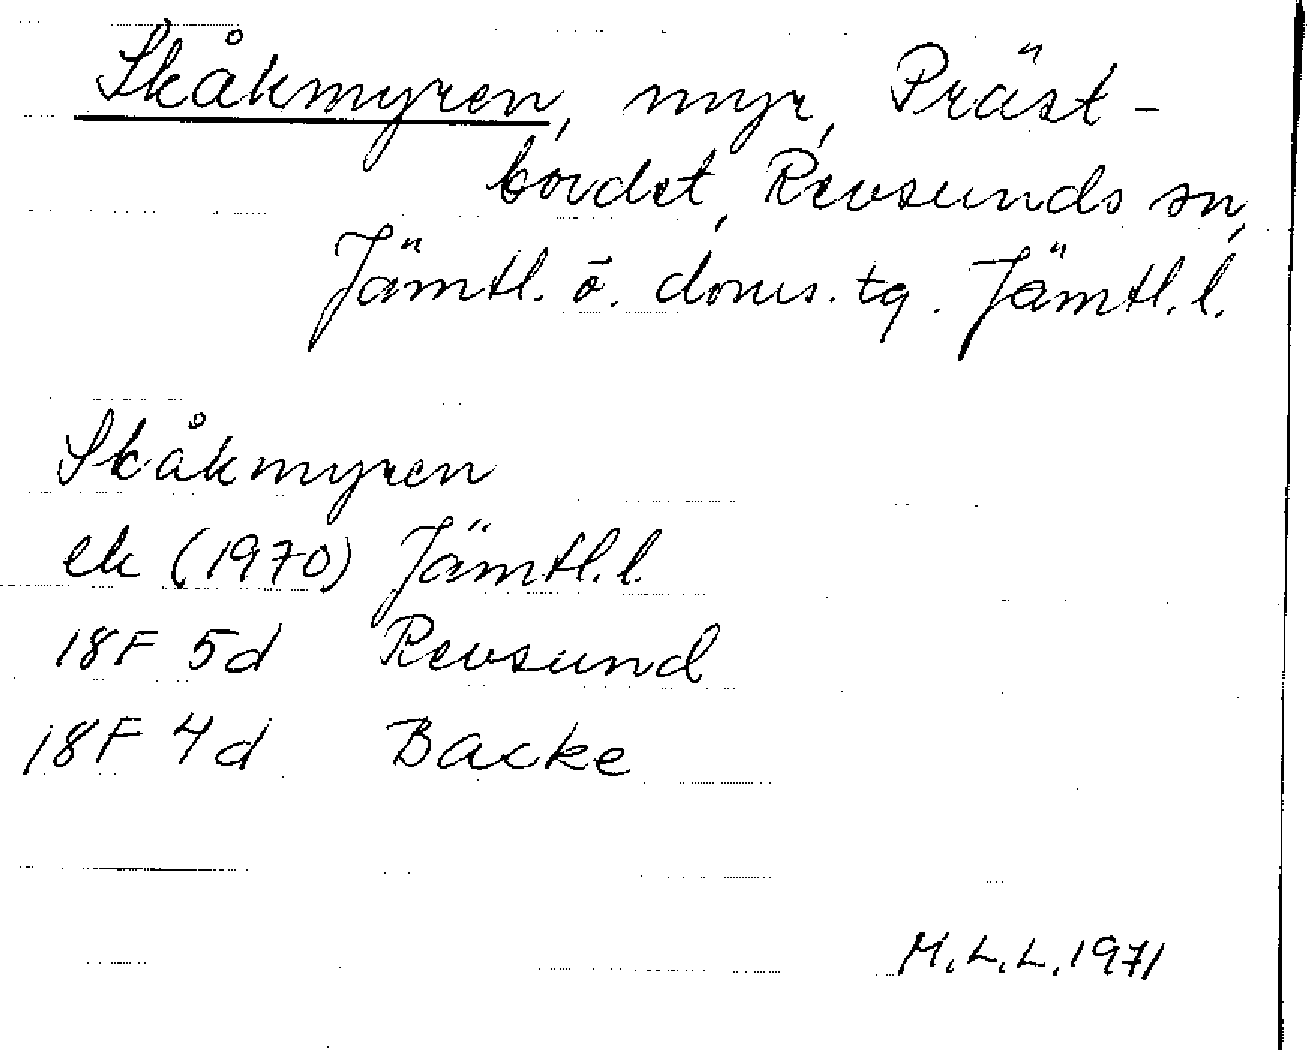 Skåkmyren, myr, Präst-
bordet, Revsunds sn,
Jämtl. ö. doms. tg. Jämtl. l.
Skåkmyren
ek (1970) Jämtl. l.
18F 5d Revsund
18F 4d Backe
M.L.L. 1971